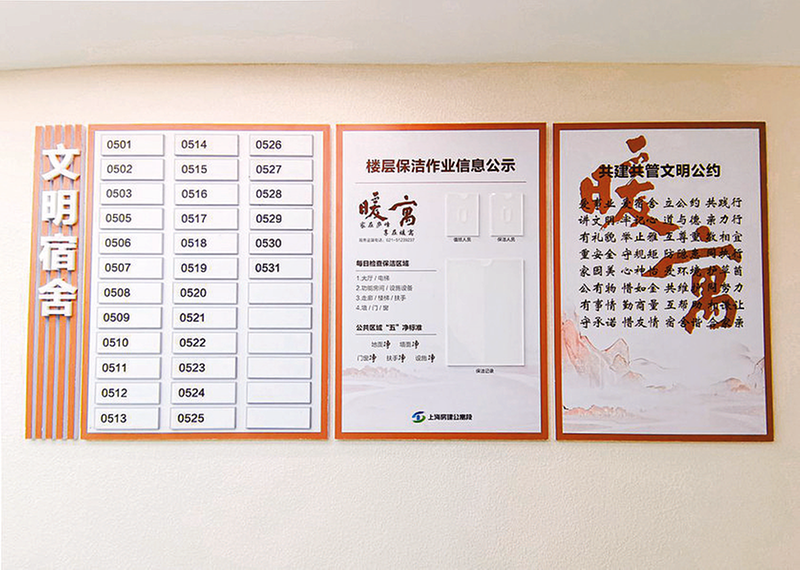 文明宿舍
0501
0502
0503
0505
0506
0507
0508
0509
0510
0511
0512
0513
0514
0515
0516
0517
0518
0519
0520
0521
0522
0523
0524
0525
0526
0527
0528
0529
0530
0531
楼层保洁作业信息公示
暖寓
家在户情
享在暖寓
服务监督电话：021-51239237
值班人员
保洁人员
每日检查保洁区域
1.大厅/电梯
2.功能房间/设施设备
3.走廊/楼梯/扶手
4.墙/门/窗
公共区域“五”净标准
地面净 墙面净
门窗净 扶手净 设施净
保洁记录
上海房建公寓段
暖寓
共建共管文明公约
爱事业 爱宿舍 立公约 共践行
讲文明 牢记心 道与德 亲力行
有礼貌 举止雅 互尊重 数相宜
重安全 守规矩 防隐患 同执行
家园美 心神怡 爱环境 护草苗
公有物 惜如金 共维护 同努力
有事情 勤商量 互帮助 相谦让
守承诺 惜友情 宿舍偕 企家亲